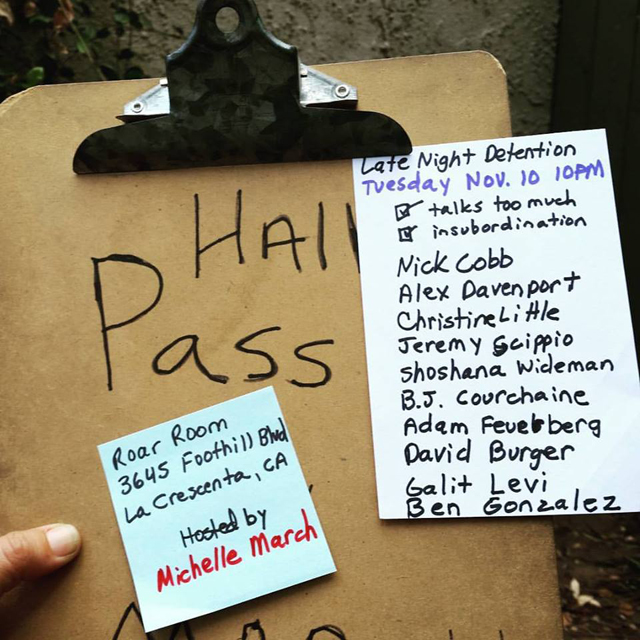 HAll
Pass
Late Night Detention
Tuesday Nov. 10 10PM
talks too much
insubordination
Nick Cobb
Alex Davenport
Christine Little
Jeremy Scippio
Shoshana Wideman
B.J. Courchaine
Adam Feuerberg
David Burger
Galit Levi
Ben Gonzalez
Roar Room
3645 Foothill Blvd
La Crescenta, CA
Hosted by
Michelle March